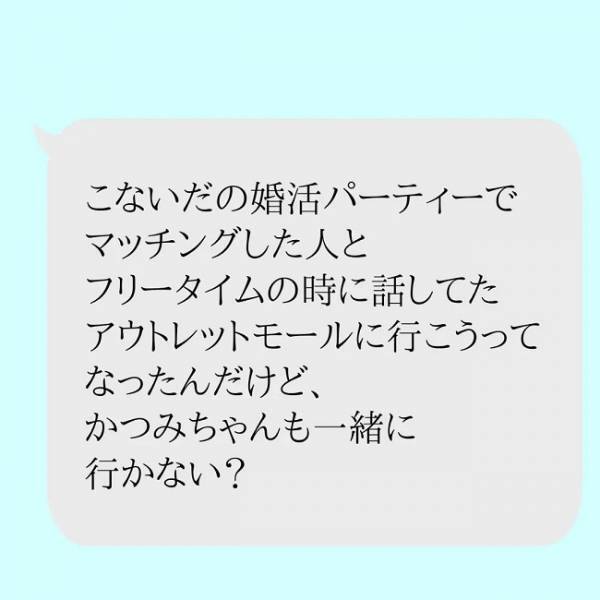 こないだの婚活パーティーで
マッチングした人と
フリータイムの時に話してた
アウトレットモールに行こうって
なったんだけど、
かつみちゃんも一緒に
行かない？